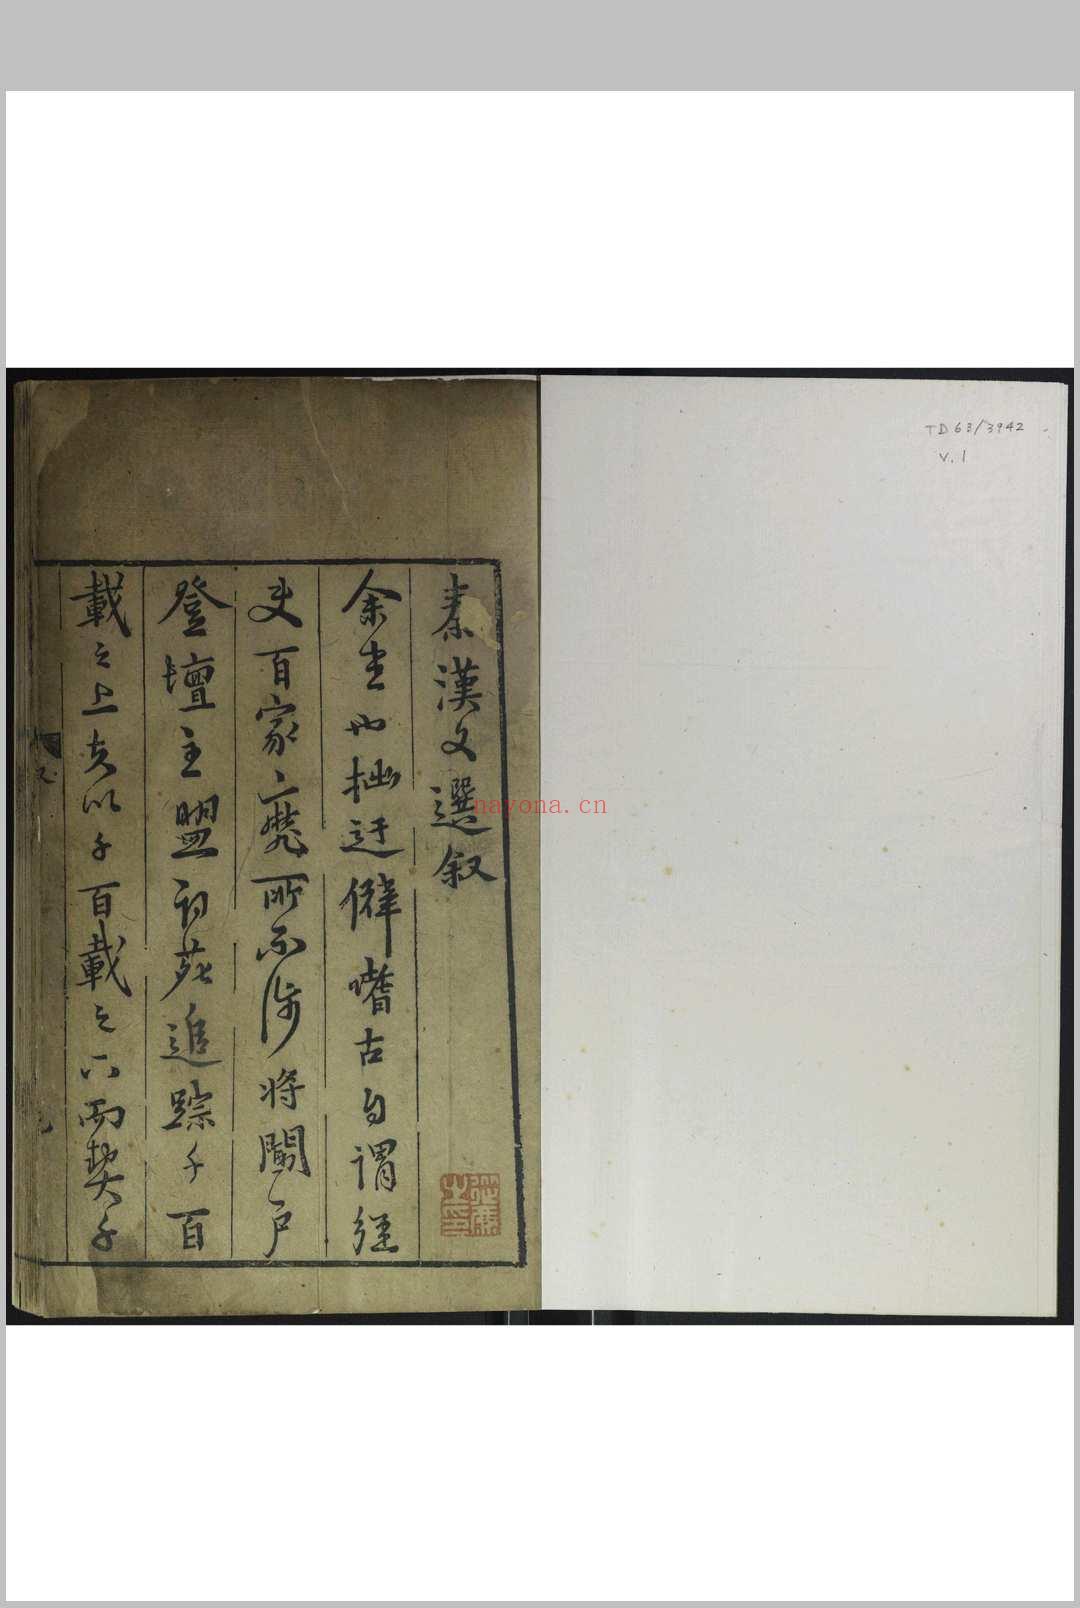 TD63/3942
v.1
秦漢文選叙
余生也拙迂僻嗜古自謂經
史百家亡虎所不涉將闖户
登壇主盟詞苑追踪千百
載之上夫以千百載之下而契千
nayona.cn